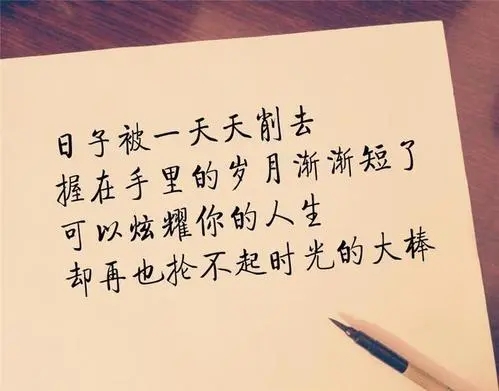 日子被一天天削去
握在手里的岁月渐渐短了
可以炫耀你的人生
却再也抡不起时光的大棒